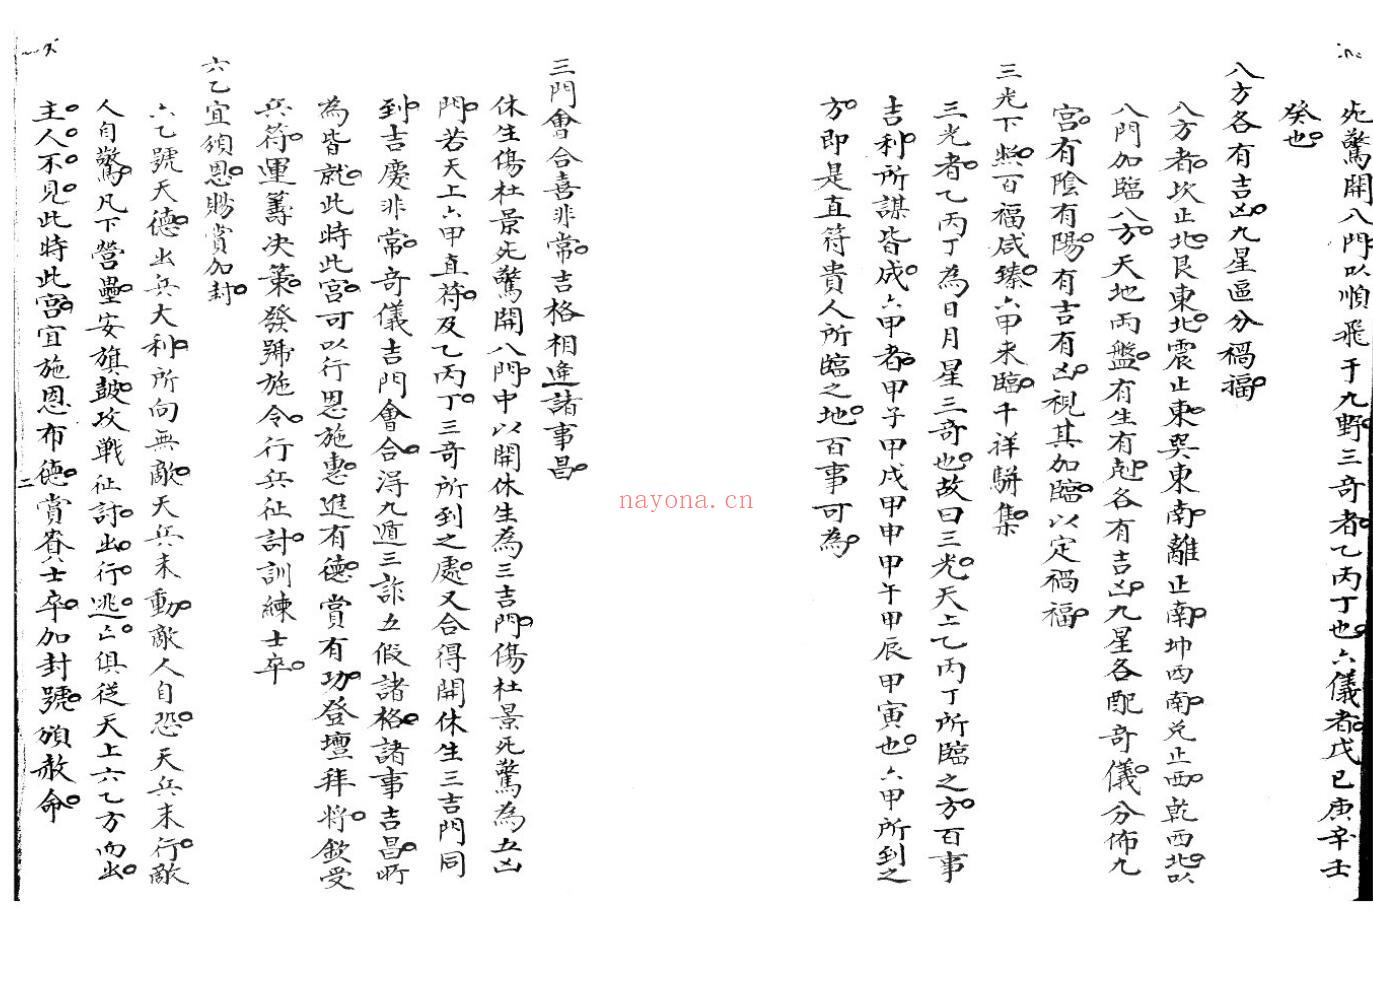 死驚開八門以順飛于九野三奇者乙丙丁也六儀者戊已庚辛壬
癸也
八方各有吉凶九星區分禍福
八方者坎止北艮東北震止東巽東南離止南坤西南兌止西乾西北以
八門加臨八方天地兩盤有生有剋各有吉凶九星各配奇儀分佈九
宮有陰有陽有吉有凶視其加臨以定禍福
三光下照百福咸臻六甲来臨千祥駢集
三光者乙丙丁為日月星三奇也故曰三光天上乙丙丁所臨之方百事
吉利所謀皆成六甲者甲子甲戌甲申甲午甲辰甲寅也六甲所到之
方即是直符貴人所臨之地百事可為
三門會合喜非常吉格相逢諸事昌
休生傷杜景死驚開八門中以開休生為三吉門傷杜景死驚為五凶
門若天上六甲直符及乙丙丁三奇所到之處又合得開休生三吉門同
到吉慶非常奇儀吉門會合得九遁三詐五假諸格諸事吉昌所
為皆就此時此宮可以行恩施惠進有德賞有功登壇拜將欽受
兵符運籌决策發號施令行兵征討訓練士卒
六乙宜頒恩賜賞加封
六乙號天德出兵大利所向無敵天兵未動敵人自恐天兵未行敵
人自驚凡下營壘安旗鼓攻戰征討出行逃亡俱從天上六乙方而出
主人不見此時此宮宜施恩布德賞賚士卒加封號頒赦命
二
nayona.cn